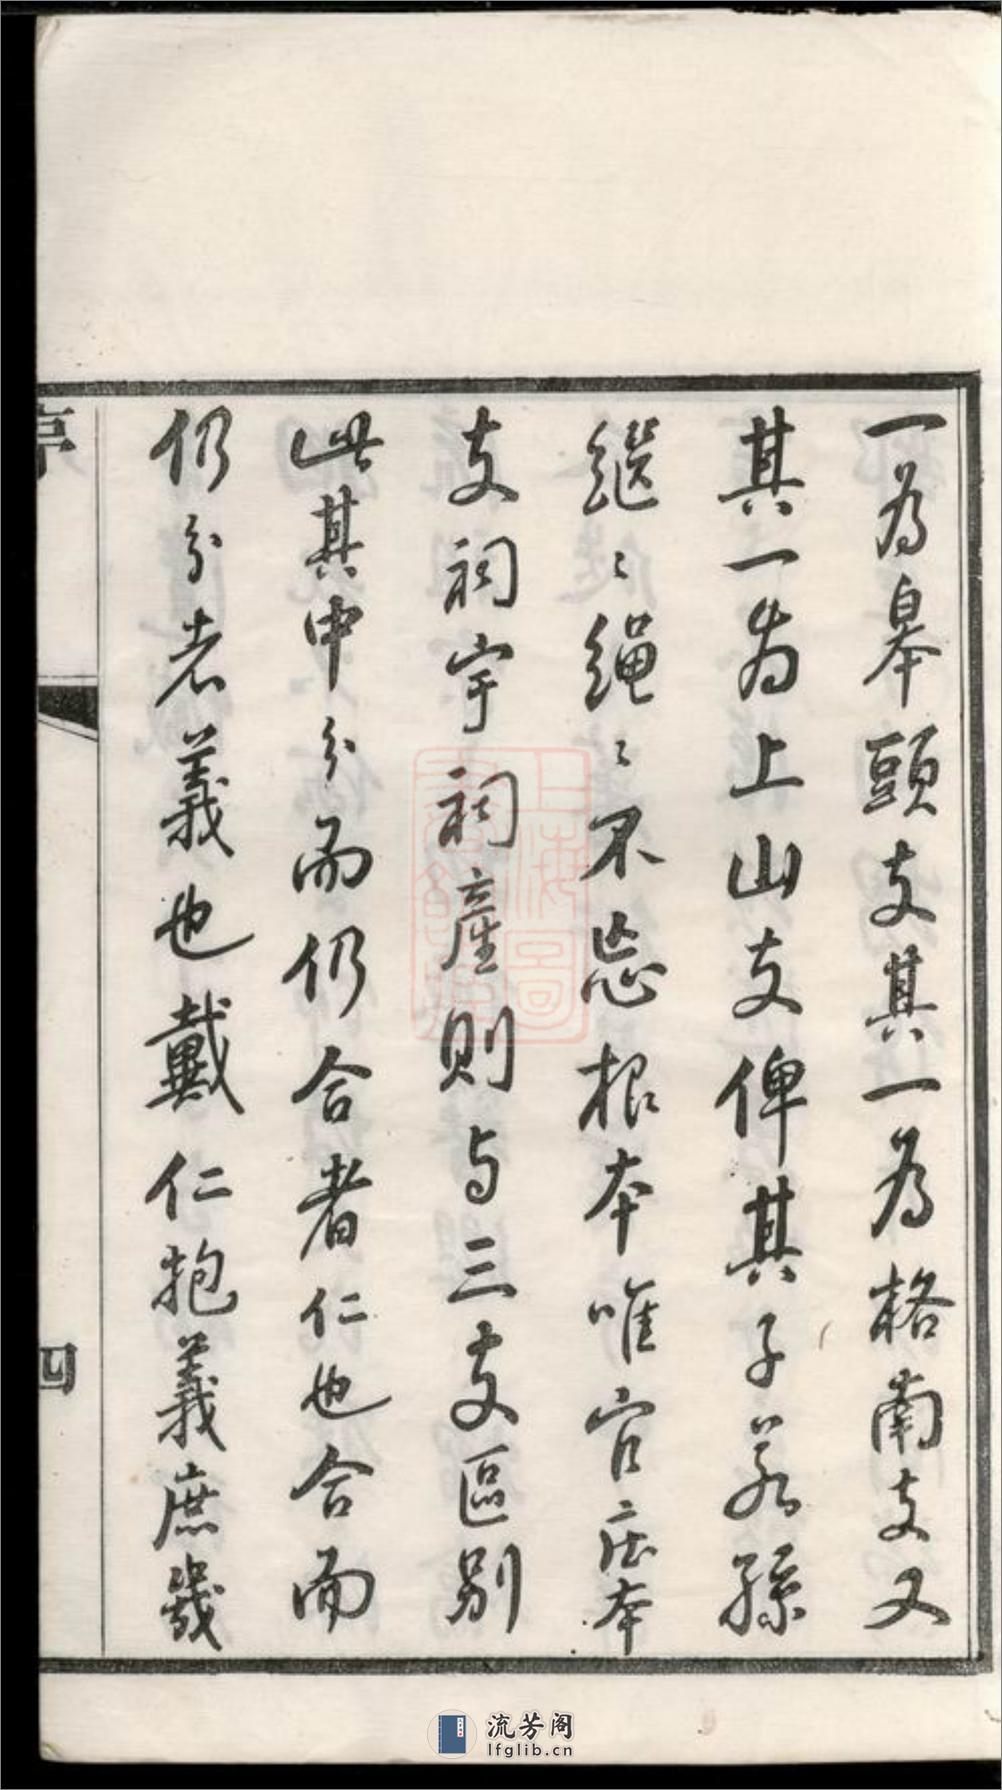 一為皋頭支其一為格南支又
其一为上山支俾其子若孫
繼〻繩〻不忘根本唯官莊本
支祠宇祠產則与三支區别
此其中分而仍合者仁也合而
仍分者義也戴仁抱義庶幾
序
四
上海圖書館藏
流芳阁
lfglib.cn